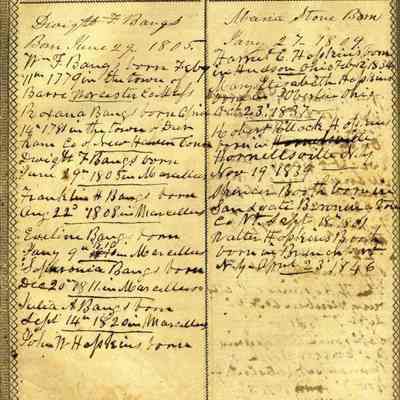 Dwight F Bangs
Born June 29. 1805.
Wm F Bangs born Feby
11th 1779 in the town of
Barre Worcester Co Mass
Roxana Bangs born
14th 1781 in the town of Dur
ham Co of New Haven Conn
Dwight F Bangs born
June 29th 1805 in Marcellus
Franklin H Bangs born
Aug 22d 1808 in Marcellus
Eveline Bangs born
Jany 9th in Marcellus
Sophronia Bangs born
Dec 20th 1811 in Marcellus
Julia A Bangs born
Sept 14th 1820 in Marcellus
John W Hopkins born
Maria Stone Born
Jany 27. 1809
Harriet E Hopkins born
in Hudson Ohio 1834
Mary Elizabeth Hopkins
born at Oberlin Ohio
23. 1837
Robert Pollock Hopkins
born in
Hornellsville N.Y
Nov 19th 1839
Spencer Booth born in
Sandgate Bennington
Co Vt Sept 18th 1801
Walter Hopkins Booth
born in Branch
N.Y April 23 1846